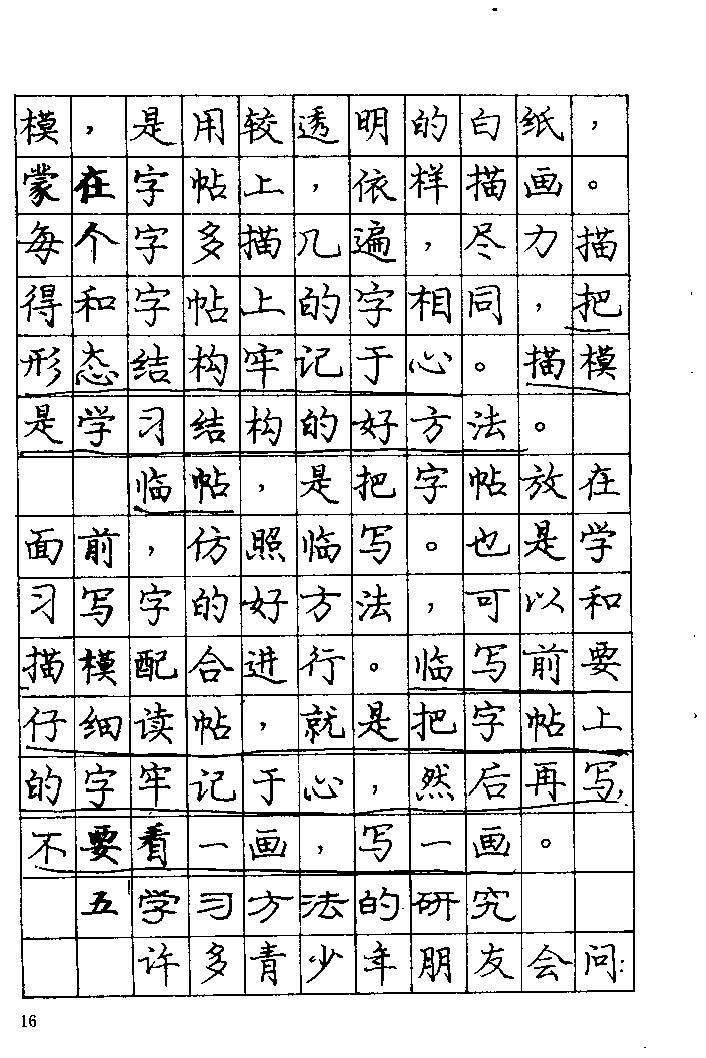 模，是用较透明的白纸，
蒙在字帖上，依样描画。
每个字多描几遍，尽力描
得和字帖上的字相同，把
形态结构牢记于心。描模
是学习结构的好方法。
临帖，是把字帖放在
面前，仿照临写。也是学
习写字的好方法，可以和
描模配合进行。临写前要
仔细读帖，就是把字帖上
的字牢记于心，然后再写，
不要看一画，写一画。
五学习方法的研究
许多青少年朋友会问：
16